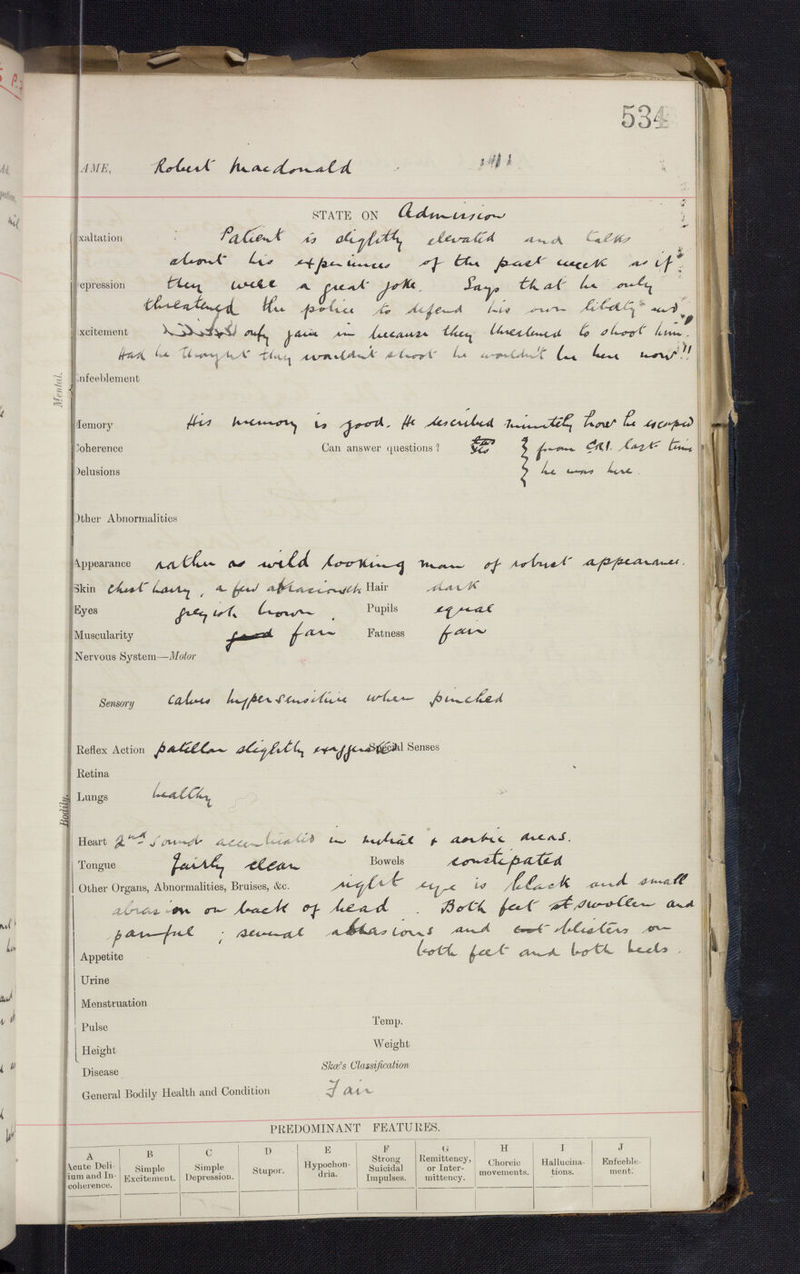 534
AME, Robert Macdonald
STATE ON Admission
xaltation Patient is slightly elevated and talks
about his experiences of the past week as if
epression they were a great joke. Says that he only
threatened the police to defend his own liberty and
xcitement only gave in because they threatened to shoot him.
Had he thought they wouldn't shoot he wouldn't be here now"!!
nfeeblement
Mental.
Memory His memory is good. He described minutely how he escaped
Coherence Can answer questions? Yes from last time
Delusions he was here.
Other Abnormalities
Appearance rather a wild looking man of robust appearance.
Skin chest hairy, a few abrasions Hair dark
Eyes greyish brown. Pupils equal
Muscularity good fair Fatness fair
Nervous System—Motor
Sensory Calves hypersensitive when pinched
Reflex Action patellar slightly Special Senses
Retina
Lungs healthy
Bodily.
Heart 2nd sound accentuated in mitral & aortic areas.
Tongue fairly clean Bowels constipated
Other Organs, Abnormalities, Bruises, &c. right eye is black and small
abras on back of head. Both feet swollen and
painful; several abrasions and blisters on
Appetite both feet and both heels.
Urine
Menstruation
Pulse Temp.
Height Weight
Disease Skæ's Classification
General Bodily Health and Condition Fair
PREDOMINANT FEATURES.
A B C D E F G H I J
Acute Deli- Simple Simple Stupor. Hypochon- Strong Remittency, Choreic Hallucina- Enfeeble-
ium and In- Excitement. Depression. dria. Suicidal or Inter- movements. tions. ment.
coherence. Impulses. mittency.